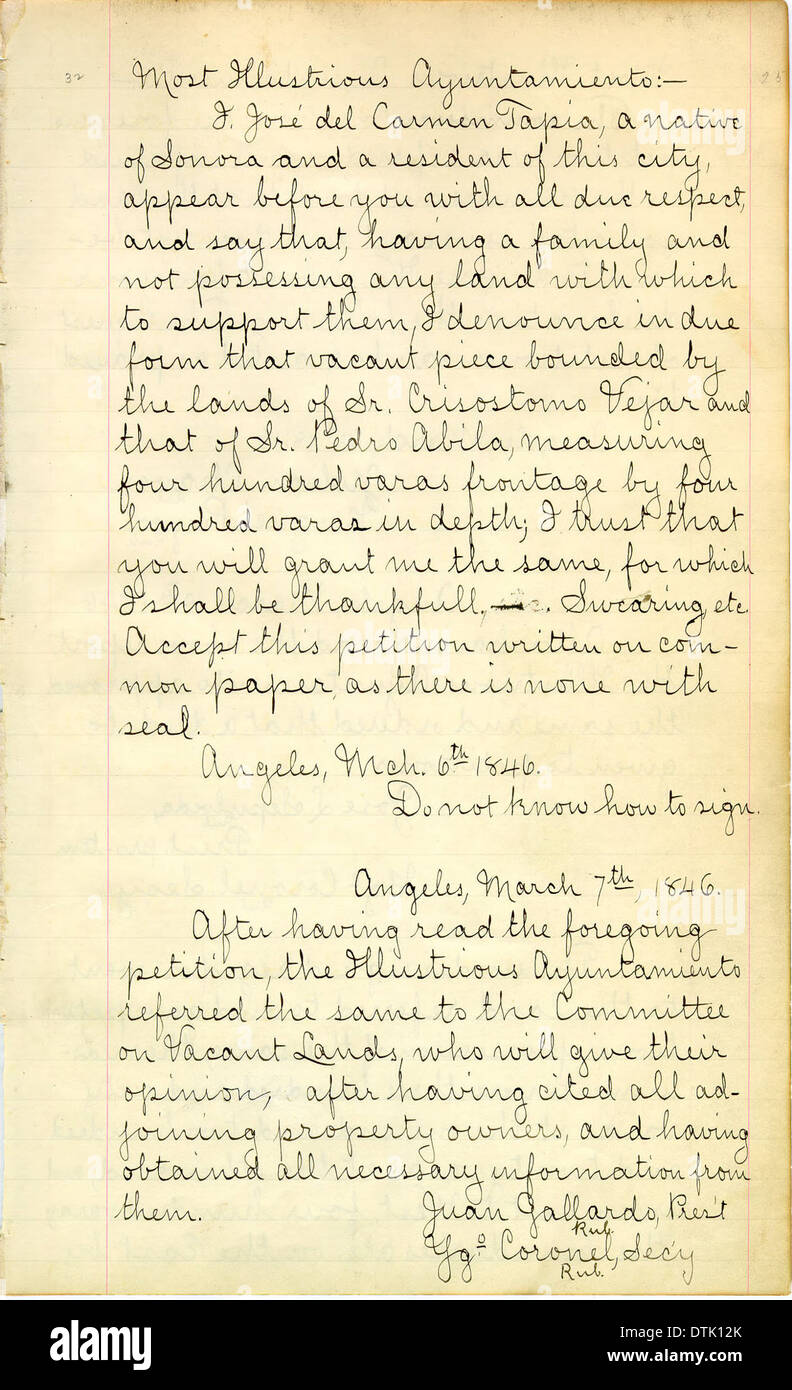 32
25
Most Illustrious Ayuntamiento:—
I. José del Carmen Tapia, a native
of Sonora and a resident of this city,
appear before you with all due respect,
and say that, having a family and
not possessing any land with which
to support them, I denounce in due
form that vacant piece bounded by
the lands of Sr. Crisostomo Vejar and
that of Sr. Pedro Abila, measuring
four hundred varas frontage by four
hundred varas in depth; I trust that
you will grant me the same, for which
I shall be thankfull, Swearing, etc
Accept this petition written on com-
mon paper, as there is none with
seal.
Angeles, Mch. 6th 1846.
Do not know how to sign.
Angeles, March 7th, 1846.
After having read the foregoing
petition, the Illustrious Ayuntamiento
referred the same to the Committee
on Vacant Lands, who will give their
opinion, after having cited all ad-
joining property owners, and having
obtained all necessary information from
them. Juan Gallardo, Pres't
Rub.
Ygo Coronel, Secy
Rub.
alamy
Image ID: DTK12K
www.alamy.com